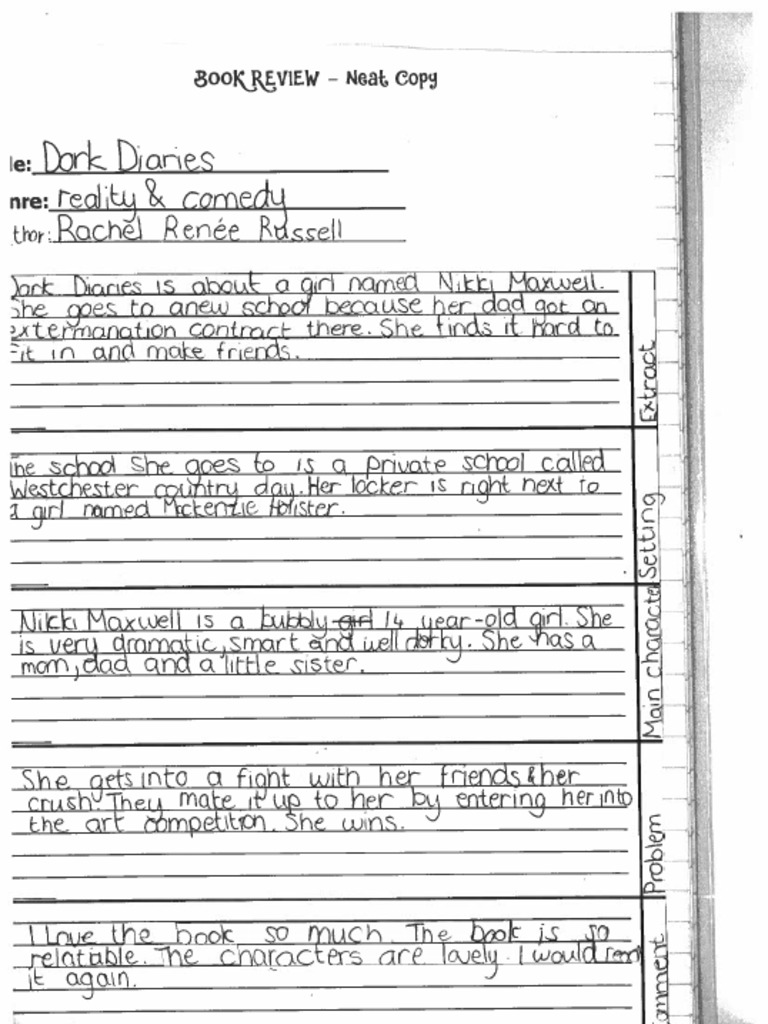 BOOK REVIEW – Neat Copy
le: Dork Diaries
nre: reality & comedy
thor: Rachel Renée Russell
Dork Diaries is about a girl named Nikki Maxwell.
She goes to anew school because her dad got an
extermanation contract there. She finds it hard to
Fit in and make friends.
Extract
The school She goes to is a private school called
Westchester country day. Her locker is right next to
a girl named Mckenzie Holister.
Setting
Nikki Maxwell is a bubbly girl 14 year-old girl. She
is very dramatic, smart and well dorky. She has a
mom, dad and a little sister.
Main character
She gets into a fight with her friends & her
crush. They make it up to her by entering her into
the art competition. She wins.
Problem
I Love the book so much. The book is so
relatable. The characters are lovely. I would read
it again.
omment